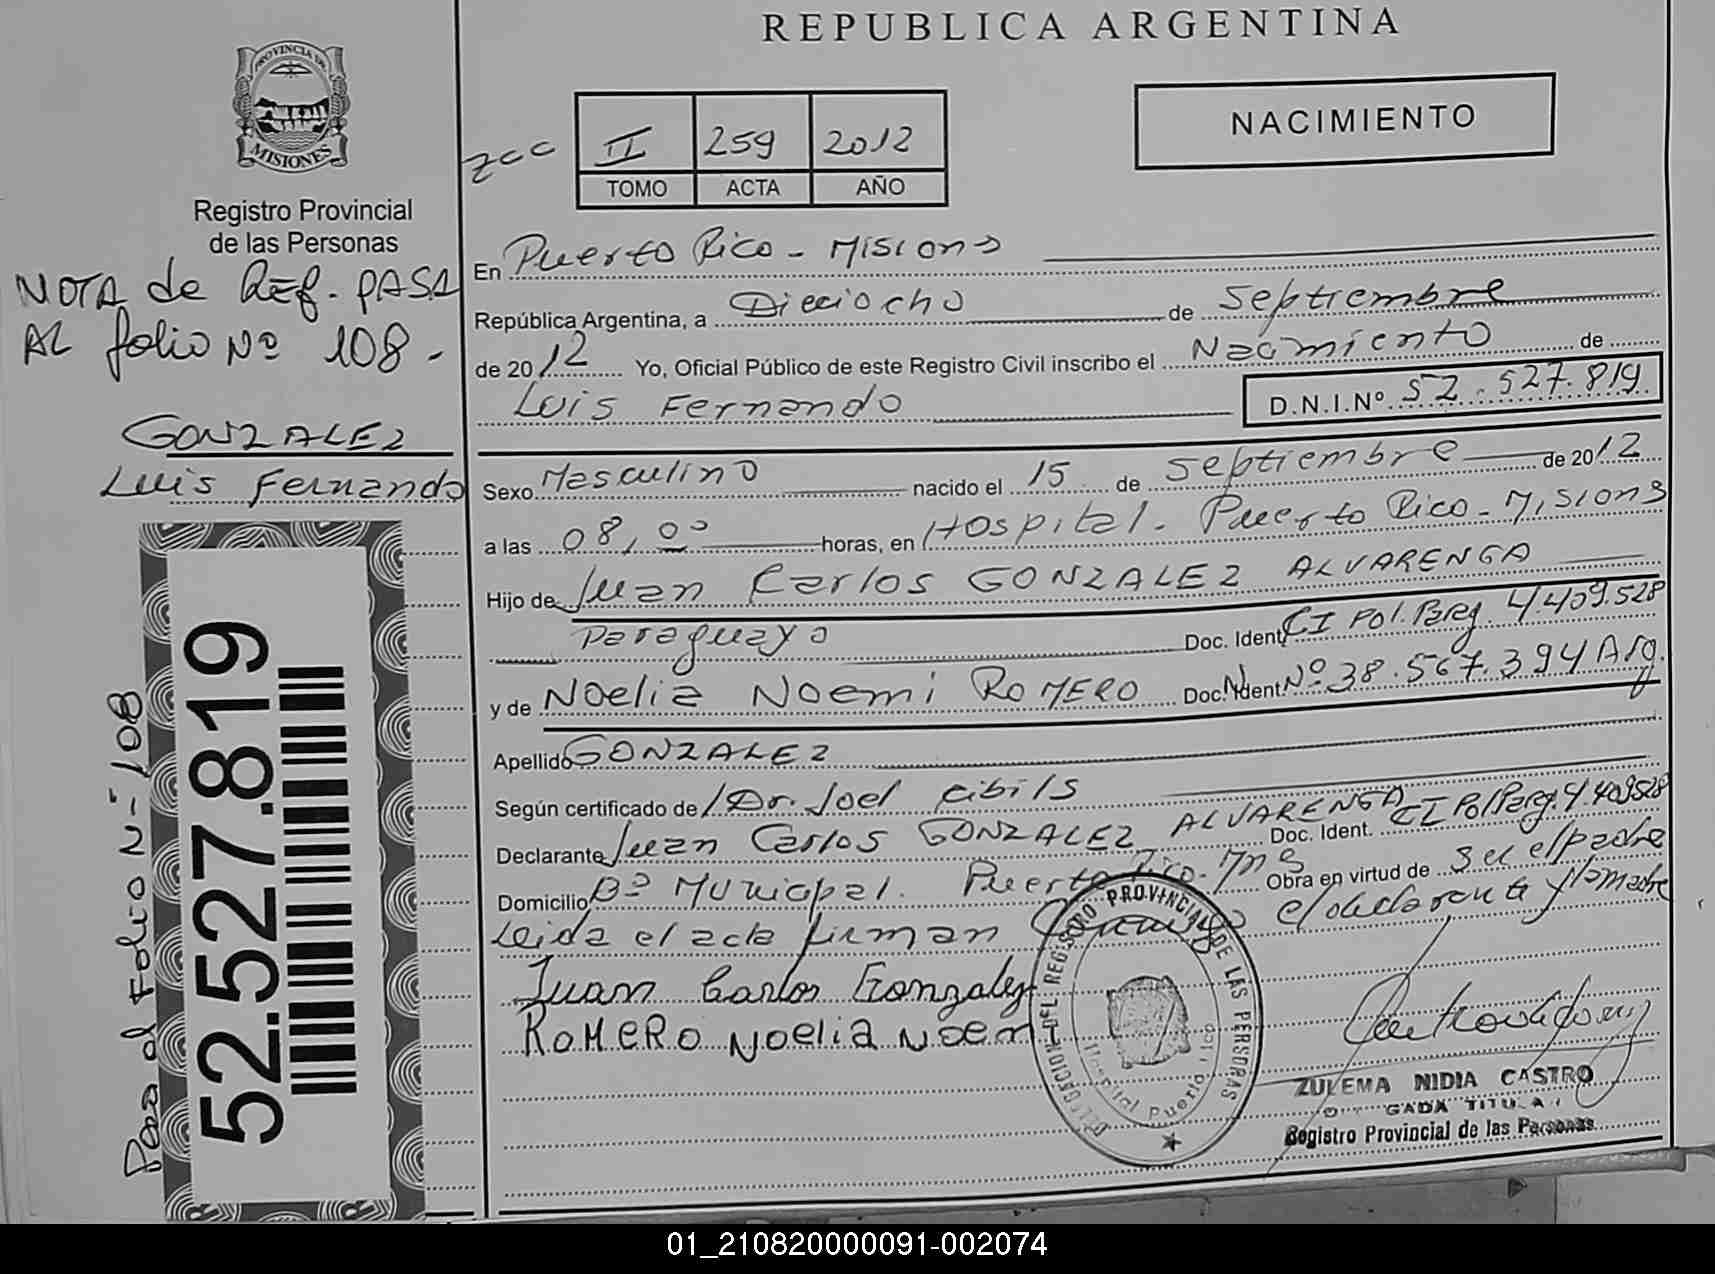 REPUBLICA ARGENTINA
PROVINCIA DE
MISIONES
Registro Provincial
de las Personas
NOTA de REF. PASA
AL folio Nº 108 -
GONZALEZ
Luis Fernando
52.527.819
Pasa al Folio Nº 108
zcc
II 259 2012
TOMO ACTA AÑO
NACIMIENTO
En Puerto Rico - Misiones
República Argentina, a Dieciocho de Septiembre
de 2012 Yo, Oficial Público de este Registro Civil inscribo el Nacimiento de
Luis Fernando D.N.I.Nº 52.527.819
Sexo Masculino nacido el 15 de Septiembre de 2012
a las 08,00 horas, en Hospital. Puerto Rico - Misiones
Hijo de Juan Carlos GONZALEZ ALVARENGA
Paraguayo Doc. Ident. CI Pol. Parag. 4.409.528
y de Noelia Noemi ROMERO Doc. Ident. Nº 38.567.394 Arg.
Apellido GONZALEZ
Según certificado de Dr. Joel Cibils
Declarante Juan Carlos GONZALEZ ALVARENGA Doc. Ident. CI Pol Parag. 4.409528
Domicilio Bº Municipal. Puerto Rico - Mns Obra en virtud de ser el padre
Leida el acta firman conmigo el declarante y la madre
Juan Carlos Gonzalez
ROMERO Noelia Noemi
DELEGACION DEL REGISTRO PROVINCIAL DE LAS PERSONAS
Puerto Rico
ZULEMA NIDIA CASTRO
Registro Provincial de las Personas
01_210820000091-002074